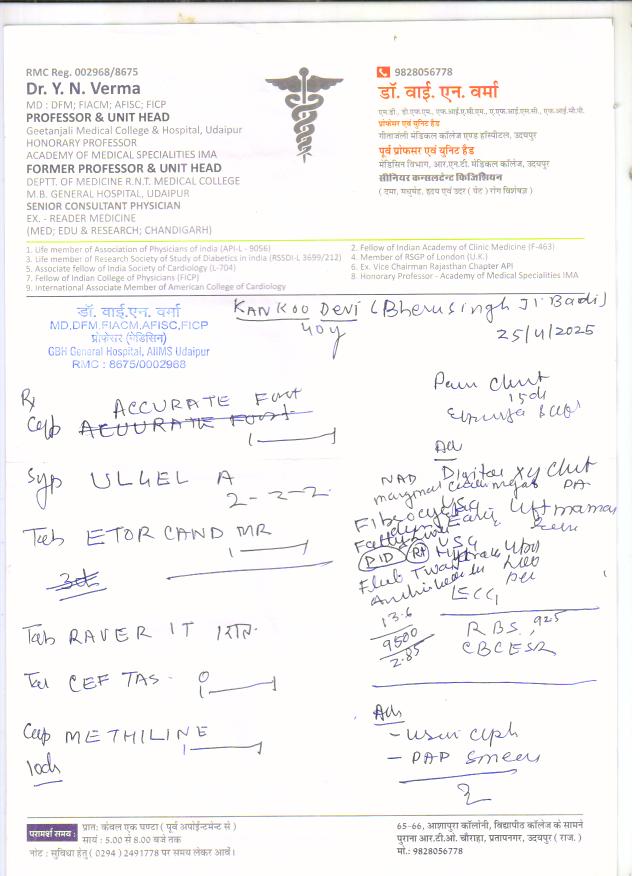 RMC Reg. 002968/8675
Dr. Y. N. Verma
MD : DFM; FIACM; AFISC; FICP
PROFESSOR & UNIT HEAD
Geetanjali Medical College & Hospital, Udaipur
HONORARY PROFESSOR
ACADEMY OF MEDICAL SPECIALITIES IMA
FORMER PROFESSOR & UNIT HEAD
DEPTT. OF MEDICINE R.N.T. MEDICAL COLLEGE
M.B. GENERAL HOSPITAL, UDAIPUR
SENIOR CONSULTANT PHYSICIAN
EX. - READER MEDICINE
(MED; EDU & RESEARCH; CHANDIGARH)
9828056778
डॉ. वाई. एन. वर्मा
एम.डी., डी.एफ.एम., एफ.आई.ए.सी.एम., ए.एफ.आई.एस.सी., एफ.आई.सी.पी.
प्रोफेसर एवं यूनिट हैड
गीताजंली मेडिकल कॉलेज एण्ड हॉस्पीटल, उदयपुर
पूर्व प्रोफेसर एवं यूनिट हैड
मेडिसिन विभाग, आर.एन.टी. मेडिकल कॉलेज, उदयपुर
सीनियर कन्सलटेन्ट फिजिशियन
( दमा, मधुमेह, हृदय एवं उदर ( पेट ) रोग विशेषज्ञ )
1. Life member of Association of Physicians of india (API-L - 9056)
3. Life member of Research Society of Study of Diabetics in india (RSSDI-L 3699/212)
5. Associate fellow of India Society of Cardiology (L-704)
7. Fellow of Indian College of Physicians (FICP)
9. International Associate Member of American College of Cardiology
2. Fellow of Indian Academy of Clinic Medicine (F-463)
4. Member of RSGP of London (U.K.)
6. Ex. Vice Chairman Rajasthan Chapter API
8. Honorary Professor - Academy of Medical Specialities IMA
डॉ. वाई.एन. वर्मा
MD,DFM,FIACM,AFISC,FICP
प्रोफेसर (मेडिसिन)
GBH General Hospital, AIIMS Udaipur
RMC : 8675/0002968
KANKOO DEVI (Bherusingh Ji Badi)
40y
25/4/2025
Rx
ACCURATE Fort
Cap
1
Syp ULGEL A
2-2-2
Tab ETORCAND MR
1
Tab RAVER IT
Tab CEF TAS
1
Cap METHILINE
1
10ds
Pain Chest
15ds
Adv
NAD Digital Xy Chest PA
USG
PID
RT
USG
ECG
13.6
9500
2.85
RBS, 92.5
CBC ESR
Adv
- PAP Smear
परामर्श समय :
प्रात: केवल एक घण्टा ( पूर्व अपोईन्टमेन्ट से )
सायं : 5.00 से 8.00 बजे तक
नोट : सुविधा हेतु ( 0294 ) 2491778 पर समय लेकर आवें।
65-66, आशापुरा कॉलोनी, विद्यापीठ कॉलेज के सामने
पुराना आर.टी.ओ. चौराहा, प्रतापनगर, उदयपुर ( राज. )
मो.: 9828056778